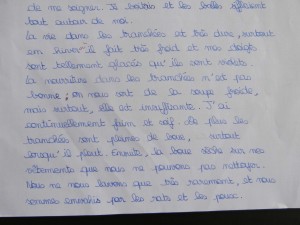 de me soigner. Je boitais et les balles sifflaient
tout autour de moi.
La vie dans les tranchées est très dure, surtout
en hiver il fait très froid et nos doigts
sont tellement glacés qu'ils sont violets.
La nourriture dans les tranchées n'est pas
bonne, on nous sert de la soupe froide,
mais surtout, elle est insuffisante. J'ai
continuellement faim et soif. De plus les
tranchées sont pleines de boue, surtout
lorsqu'il pleut. Ensuite, la boue sèche sur nos
vêtements que nous ne pouvons pas nettoyer.
Nous ne nous lavons que très rarement, et nous
sommes envahis par les rats et les poux.